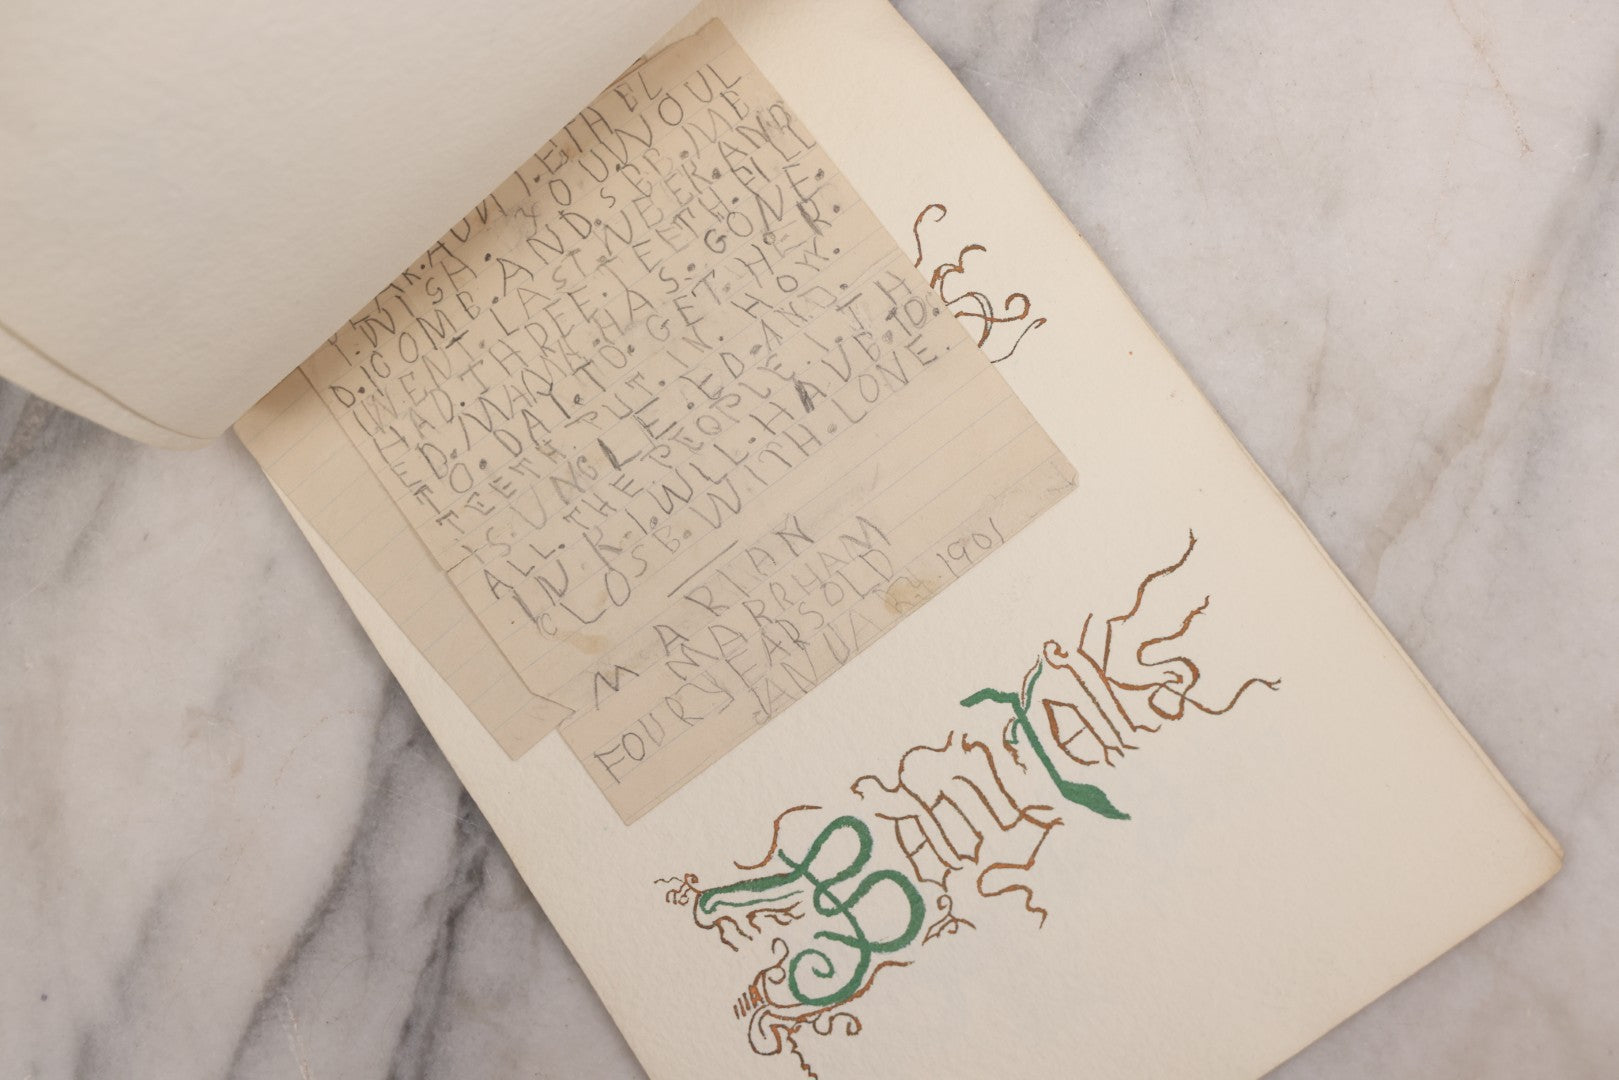 D.AR.AUNT.ETHEL
I.WISH.YOU.WOUL
D.COMB.AND.SEE.ME
WENT.LAST.NUBER.AND
HAD.THREE.TEETH.FILL
ED.MAMA.HAS.GONE.
TO.DAY.TO.GET.HER.
TEETH.PUT.IN.HOW.
IS.UNGLE.ED.AND.
ALL.THE.PEOPLE.I.TH
IN.K.I.WILL.HAVE.TO.
CLOSE.WITH.LOVE.
MARIAN
MARRHAM
FOUR YEARS OLD
JANUARY.1901
Baby Talks